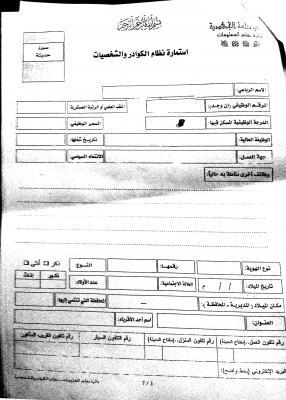 بسم الله الرحمن الرحيم
دائرة نظام المعلومات
صورة
حديثة
استمارة نظام الكوادر والشخصيات
الاسم الرباعي:
الرقم الوظيفي (إن وجد):
اللقب العلمي أو الرتبة العسكرية
الدرجة الوظيفية المسكن فيها:
المسمى الوظيفي:
الوظيفة الحالية:
تاريخ شغلها:
جهة العمل:
الانتماء السياسي:
وظائف أخرى مناطة به حالياً:
نوع الهوية:
رقمها:
النوع:
ذكر
أنثى
تاريخ الميلاد:
/ / م
الحالة الاجتماعية:
عدد الأولاد:
ذكور
إناث
مكان الميلاد (المديرية - المحافظة):
المحافظة التي تنتمي إليها:
العنوان:
اسم أحد الأقرباء:
رقم تلفون العمل (مفتاح المدينة)
رقم تلفون المنزل (مفتاح المدينة)
رقم تلفون السيار
رقم تلفون القريب المذكور
البريد الإلكتروني (بخط واضح):